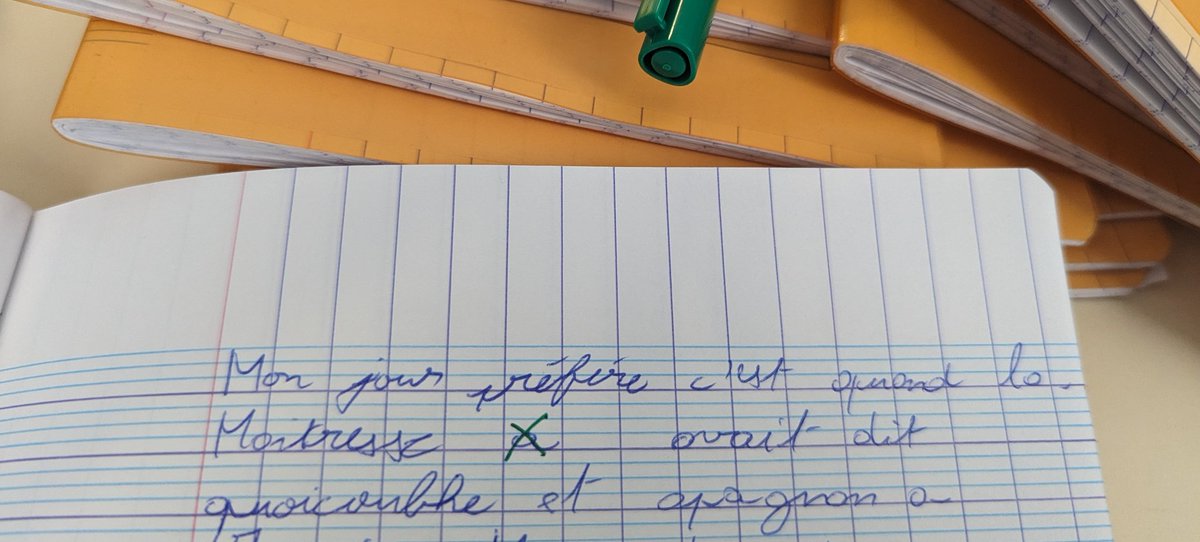 Mon jour préfére c'est quand la
Maitresse a avait dit
quoicoubhe et apagnan a